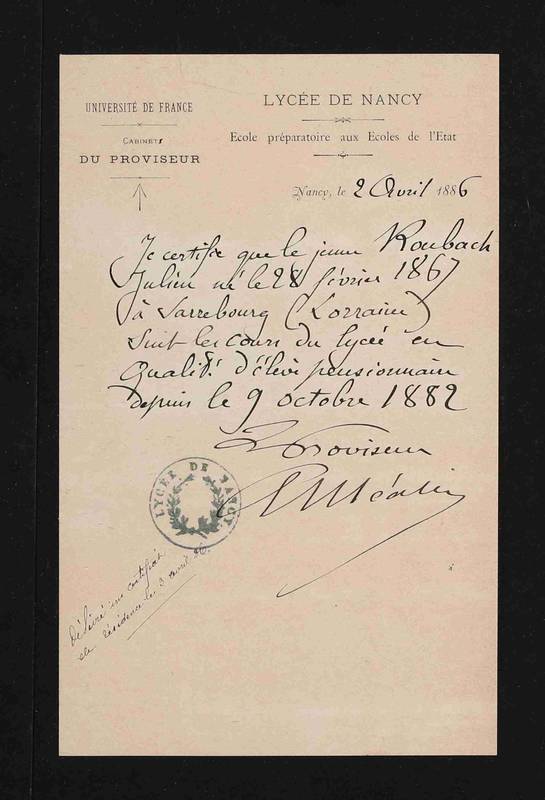 UNIVERSITÉ DE FRANCE
CABINETS
DU PROVISEUR
LYCÉE DE NANCY
Ecole préparatoire aux Ecoles de l'Etat
Nancy, le 2 Avril 1886
Je certifie que le jeune Roubach
Julien né le 28 février 1867
à Sarrebourg (Lorraine)
suit les cours du lycée en
qualité d'élève pensionnaire
depuis le 9 octobre 1882
Le Proviseur
LYCÉE DE NANCY
Délivré un certificat
de résidence le 3 avril 86.